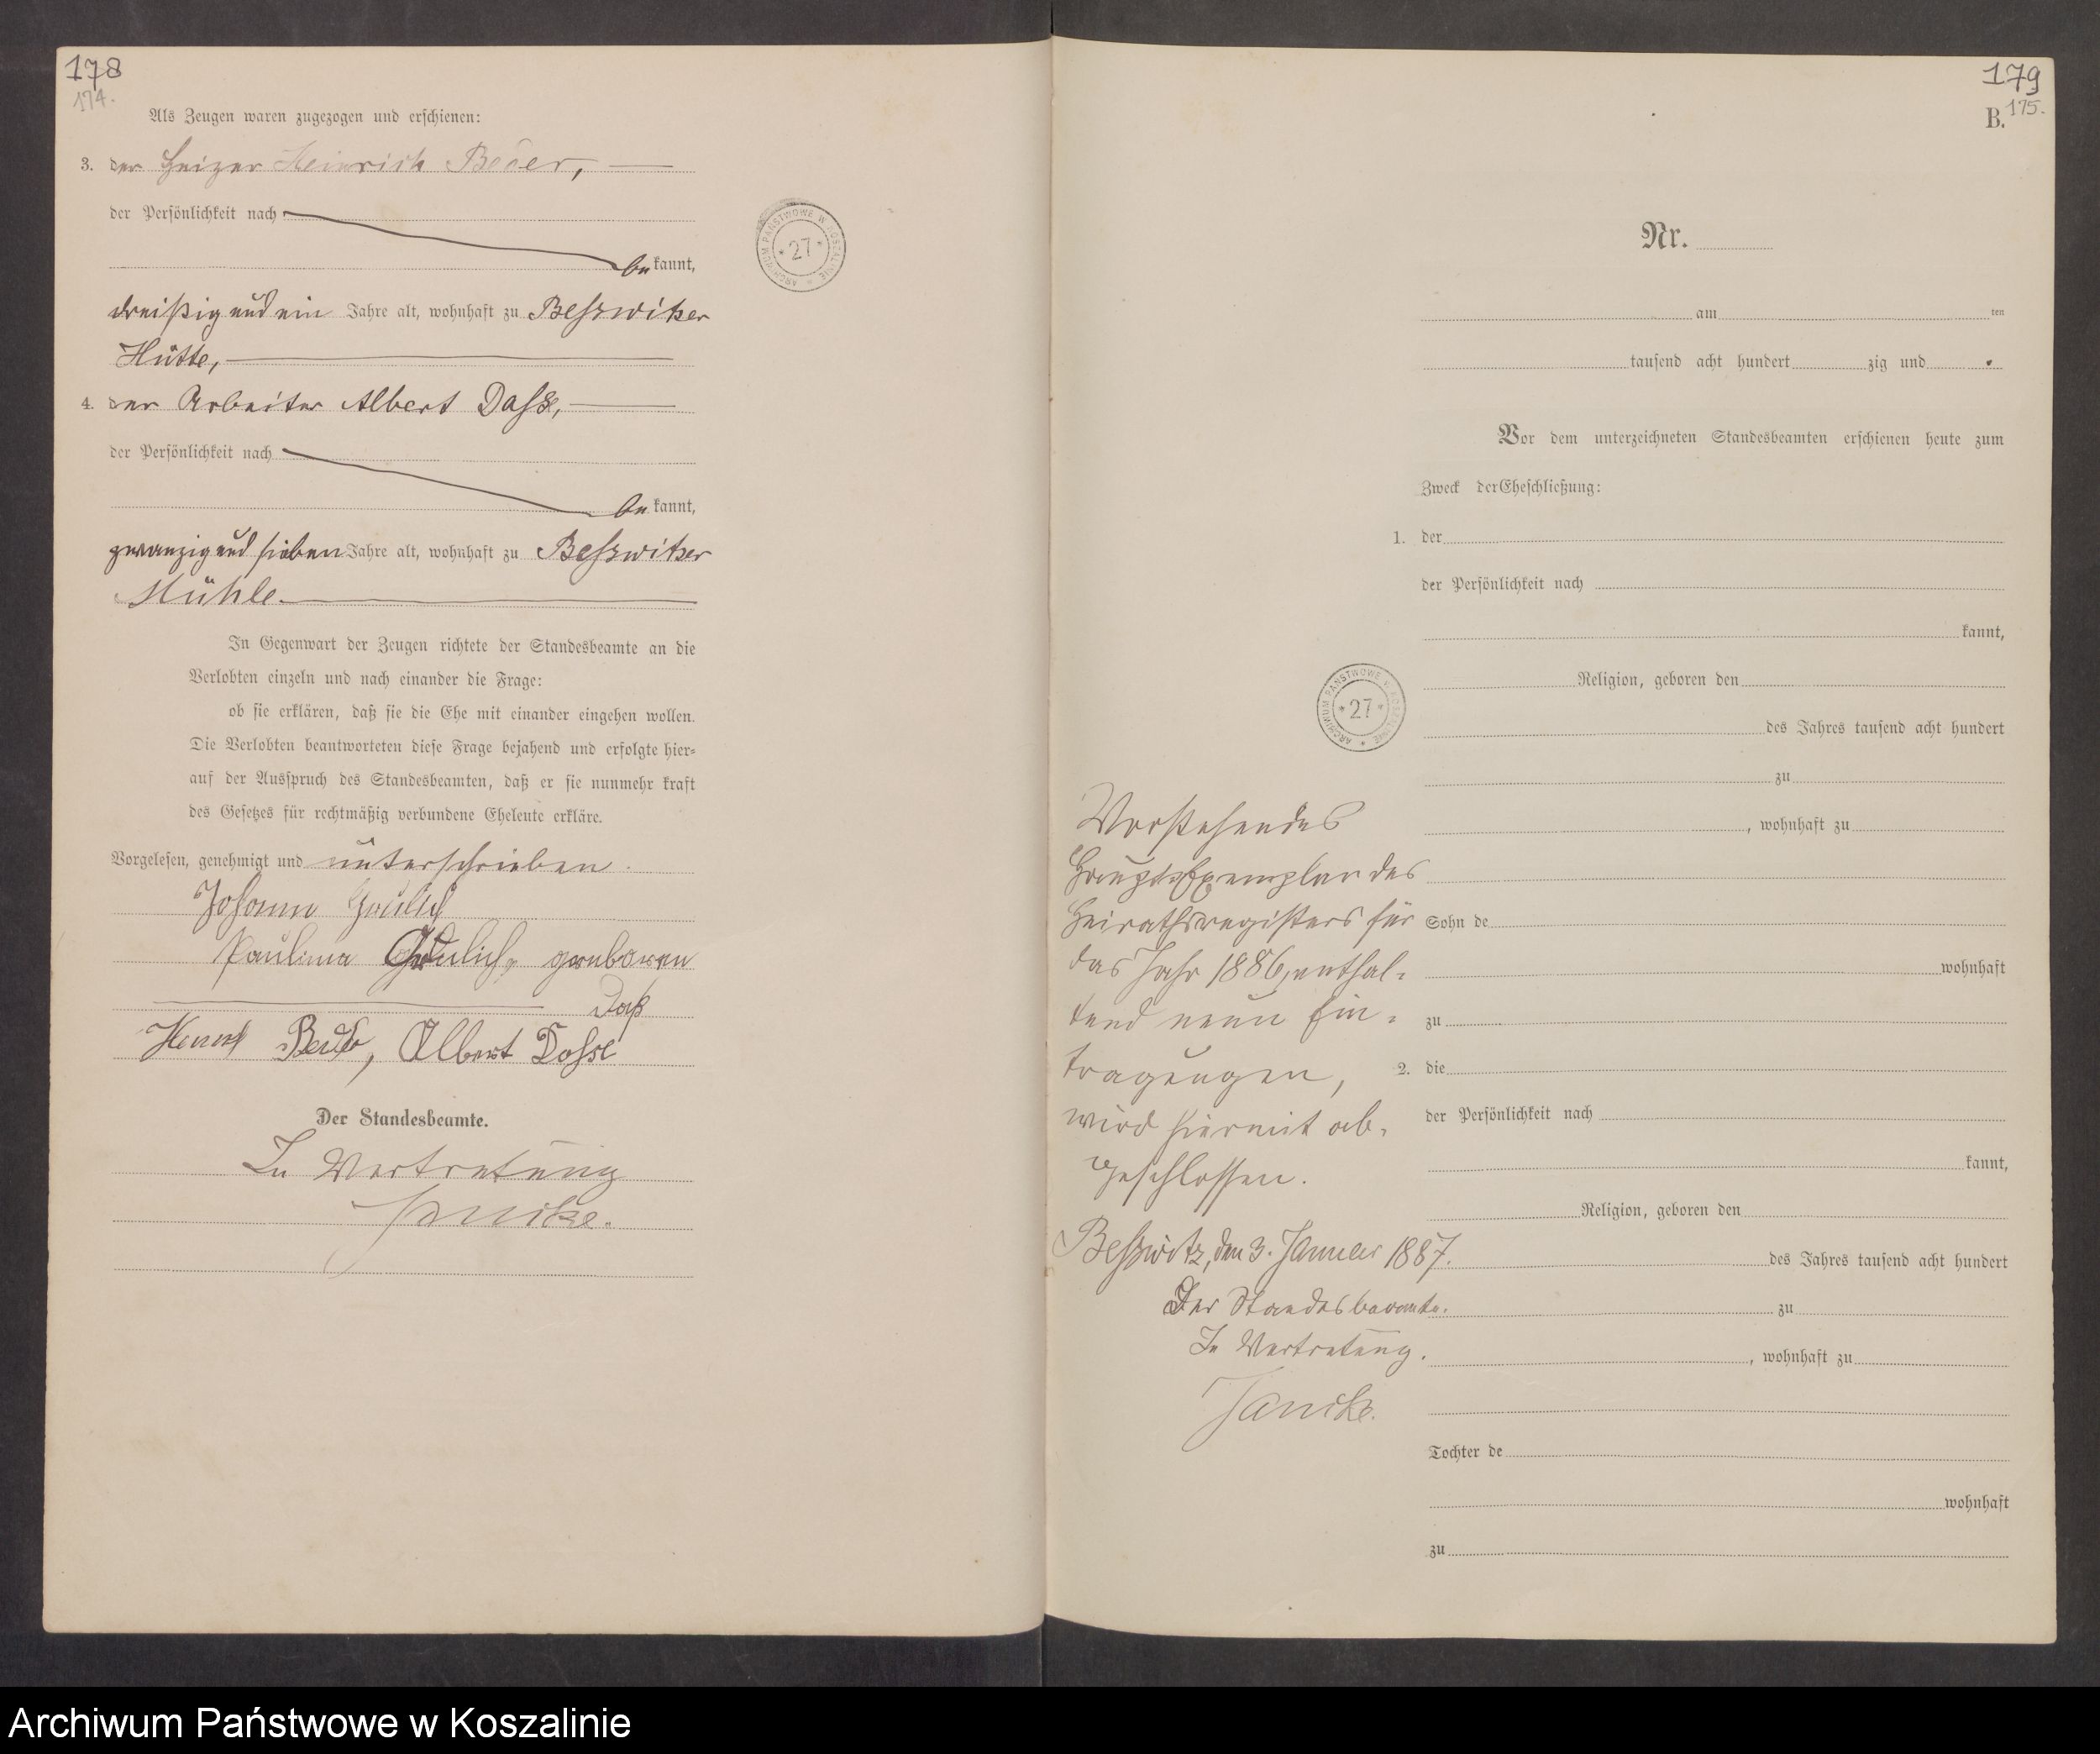 178
174.
Als Zeugen waren zugezogen und erschienen:
3. der Heizer Heinrich
der Persönlichkeit nach
bekannt,
dreißig und ein Jahre alt, wohnhaft zu Beßwitzer
Hütte,
4. der Arbeiter Albert Dasse,
der Persönlichkeit nach
bekannt,
zwanzig und sieben Jahre alt, wohnhaft zu Beßwitzer
Mühle
In Gegenwart der Zeugen richtete der Standesbeamte an die
Verlobten einzeln und nach einander die Frage:
ob sie erklären, daß sie die Ehe mit einander eingehen wollen.
Die Verlobten beantworteten diese Frage bejahend und erfolgte hier=
auf der Ausspruch des Standesbeamten, daß er sie nunmehr kraft
des Gesetzes für rechtmäßig verbundene Eheleute erkläre.
Vorgelesen, genehmigt und unterschrieben.
Johann
Paulina geboren
Albert Dasse
Der Standesbeamte.
In Vertretung
Janicke.
ARCHIWUM PAŃSTWOWE W KOSZALINIE
* 27 *
179
175.
B.
Nr.
am ten
tausend acht hundert zig und
Vor dem unterzeichneten Standesbeamten erschienen heute zum
Zweck der Eheschließung:
1. der
der Persönlichkeit nach
kannt,
Religion, geboren den
des Jahres tausend acht hundert
zu
, wohnhaft zu
Sohn de
wohnhaft
zu
2. die
der Persönlichkeit nach
kannt,
Religion, geboren den
des Jahres tausend acht hundert
zu
, wohnhaft zu
Tochter de
wohnhaft
zu
ARCHIWUM PAŃSTWOWE W KOSZALINIE
* 27 *
Vorstehendes
Haupt-Exemplar des
Heirathsregisters für
das Jahr 1886, enthal=
tend neun Ein=
tragungen,
wird hiermit ab=
geschlossen.
Beßwitz, den 3. Januar 1887.
Der Standesbeamte.
In Vertretung.
Janicke.
Archiwum Państwowe w Koszalinie